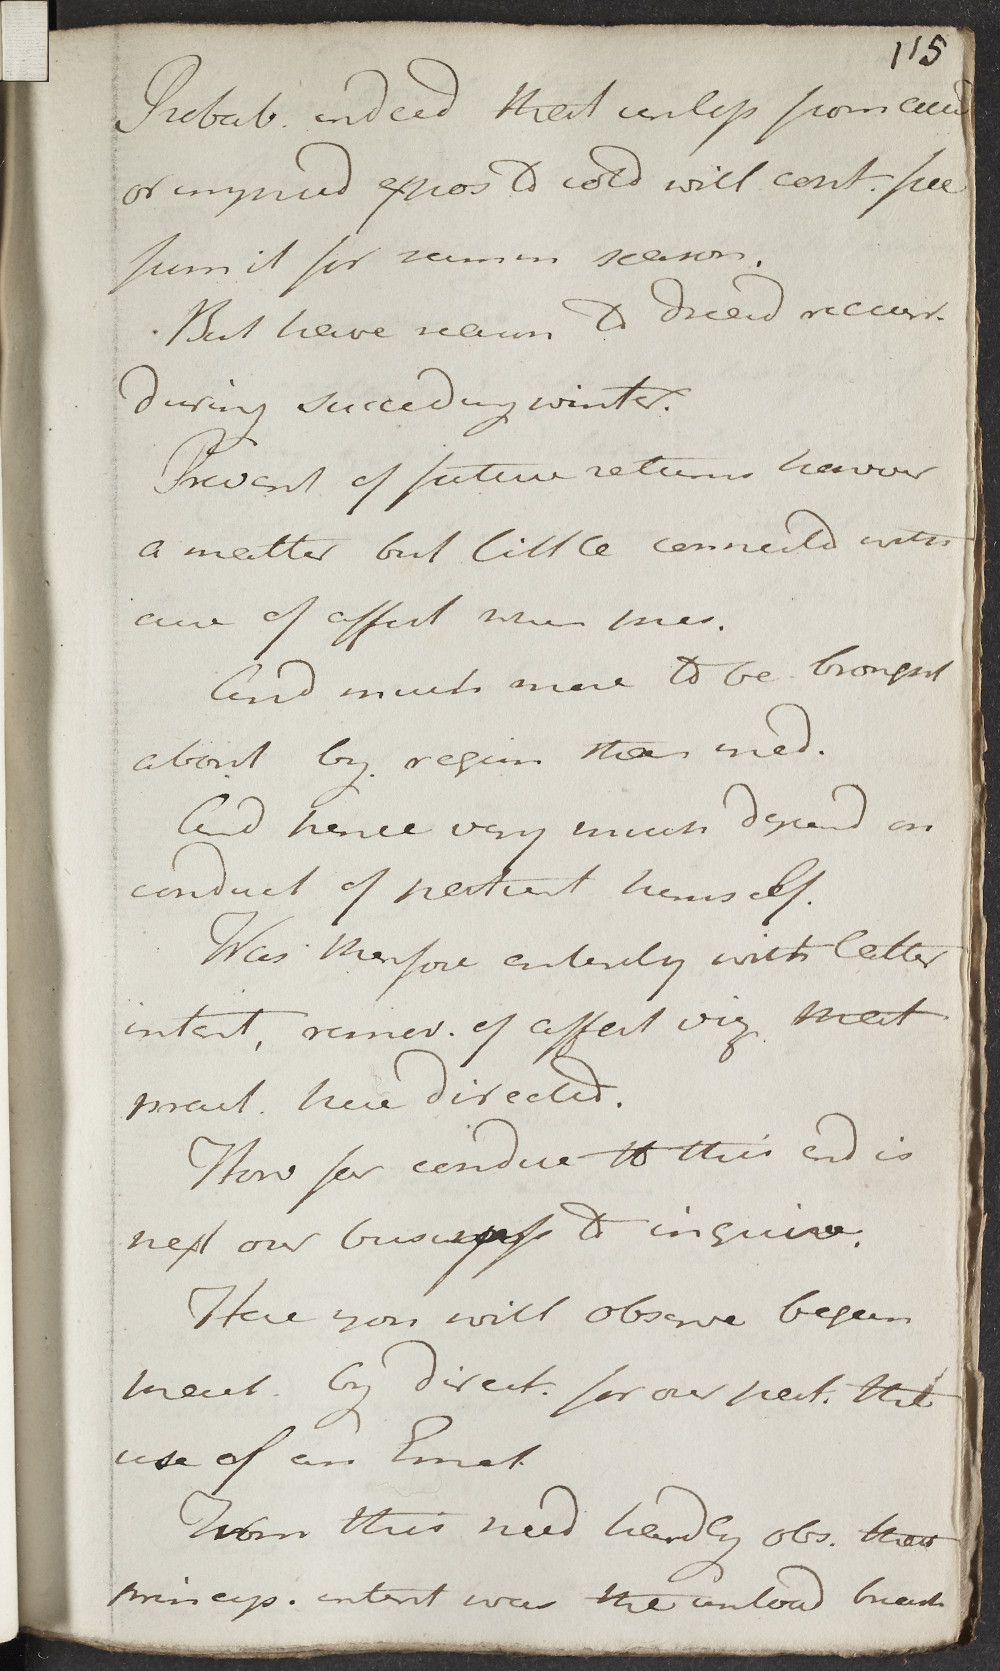 115
Probab. indeed that unless from accid
or imprud expos to cold will cont. free
from it for remain season.
But have reason to dread recurr.
during succeeding winter.
Prevent of future returns however
a matter but little connected with
cure of affect when pres.
And much more to be brought
about by regim than med.
And hence very much depend on
conduct of patient himself.
Was therfore entirely with latter
intent, remov. of affect viz. that
pract. here directed.
How far conduc to this end is
next our business to inquire.
Here you will observe began
treat. by direct. for our pat. the
use of an Emet.
From this need hardly obs. that
princip. intent was the unload breast